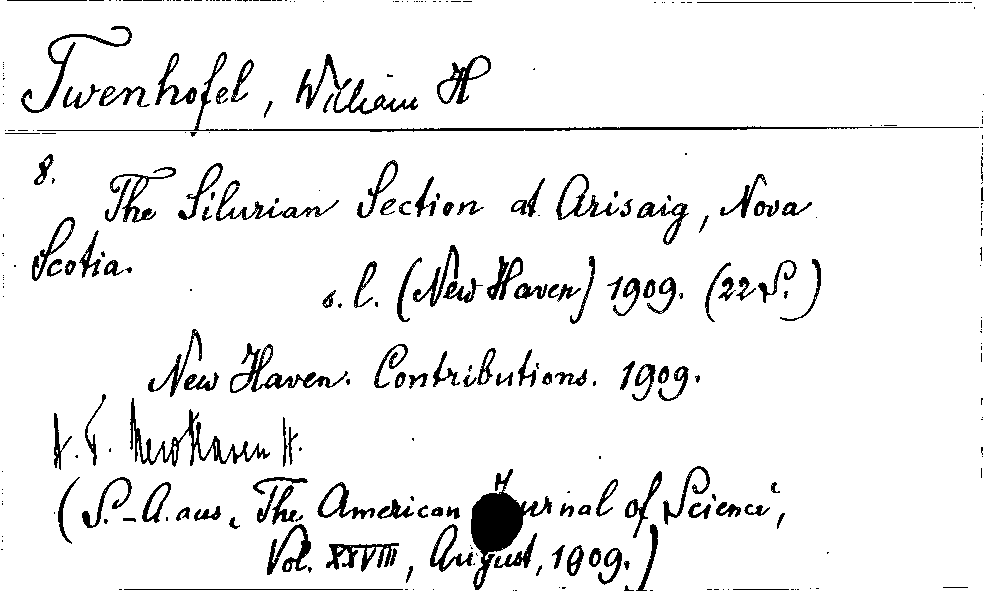 Twenhofel, William H
8.
The Silurian Section at Arisaig, Nova
Scotia.
s. l. (New Haven) 1909. (22 S.)
New Haven. Contributions. 1909.
New Haven H.
(S.-A. aus „The American Journal of Science",
Vol. XXVIII, August, 1909.)